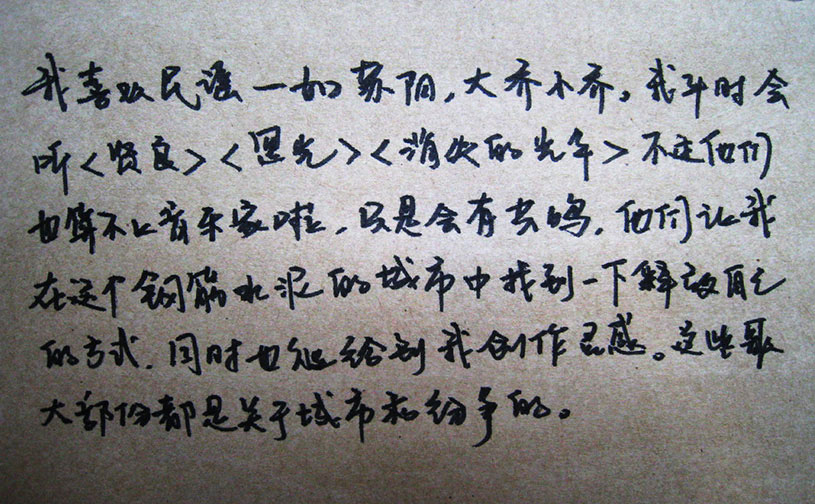 我喜欢民谣一如苏阳,大乔小乔。我平时会
听<贤良><恩光><消失的光年>不过他们
也算不上音乐家啦,只是会有共鸣,他们让我
在这个钢筋水泥的城市中找到一下释放自己
的方式.同时也能给到我创作灵感。这些歌
大部份都是关于城市和纷争的。